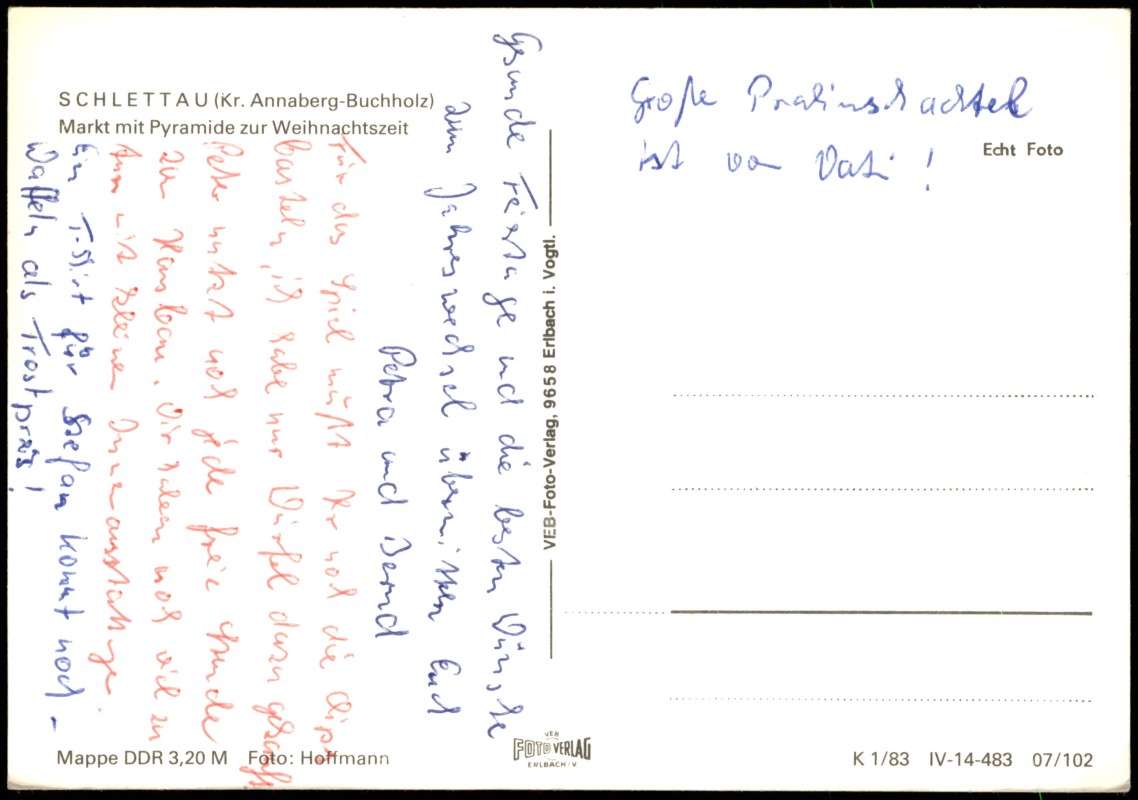 SCHLETTAU (Kr. Annaberg-Buchholz)
Markt mit Pyramide zur Weihnachtszeit
Gesunde Feiertage und die besten Wünsche
zum Jahreswechsel übermitteln Euch
Petra und Bernd
Für das Spiel müßt Ihr noch die Chips
basteln, ich habe nur Würfel dazu geschafft.
Peter nutzt noch jede freie Stunde
zum Hausbau. Wir haben noch viel zu
tun mit kleinen Innenausstattungen.
Ein T-Shirt für Stefan kommt noch –
Waffeln als Trostpreis!
VEB-Foto-Verlag, 9658 Erlbach i. Vogtl.
Große Pralinschachtel
ist von Vati!
Echt Foto
Mappe DDR 3,20 M Foto: Hoffmann
VEB
FOTO VERLAG
ERLBACH/V
K 1/83 IV-14-483 07/102